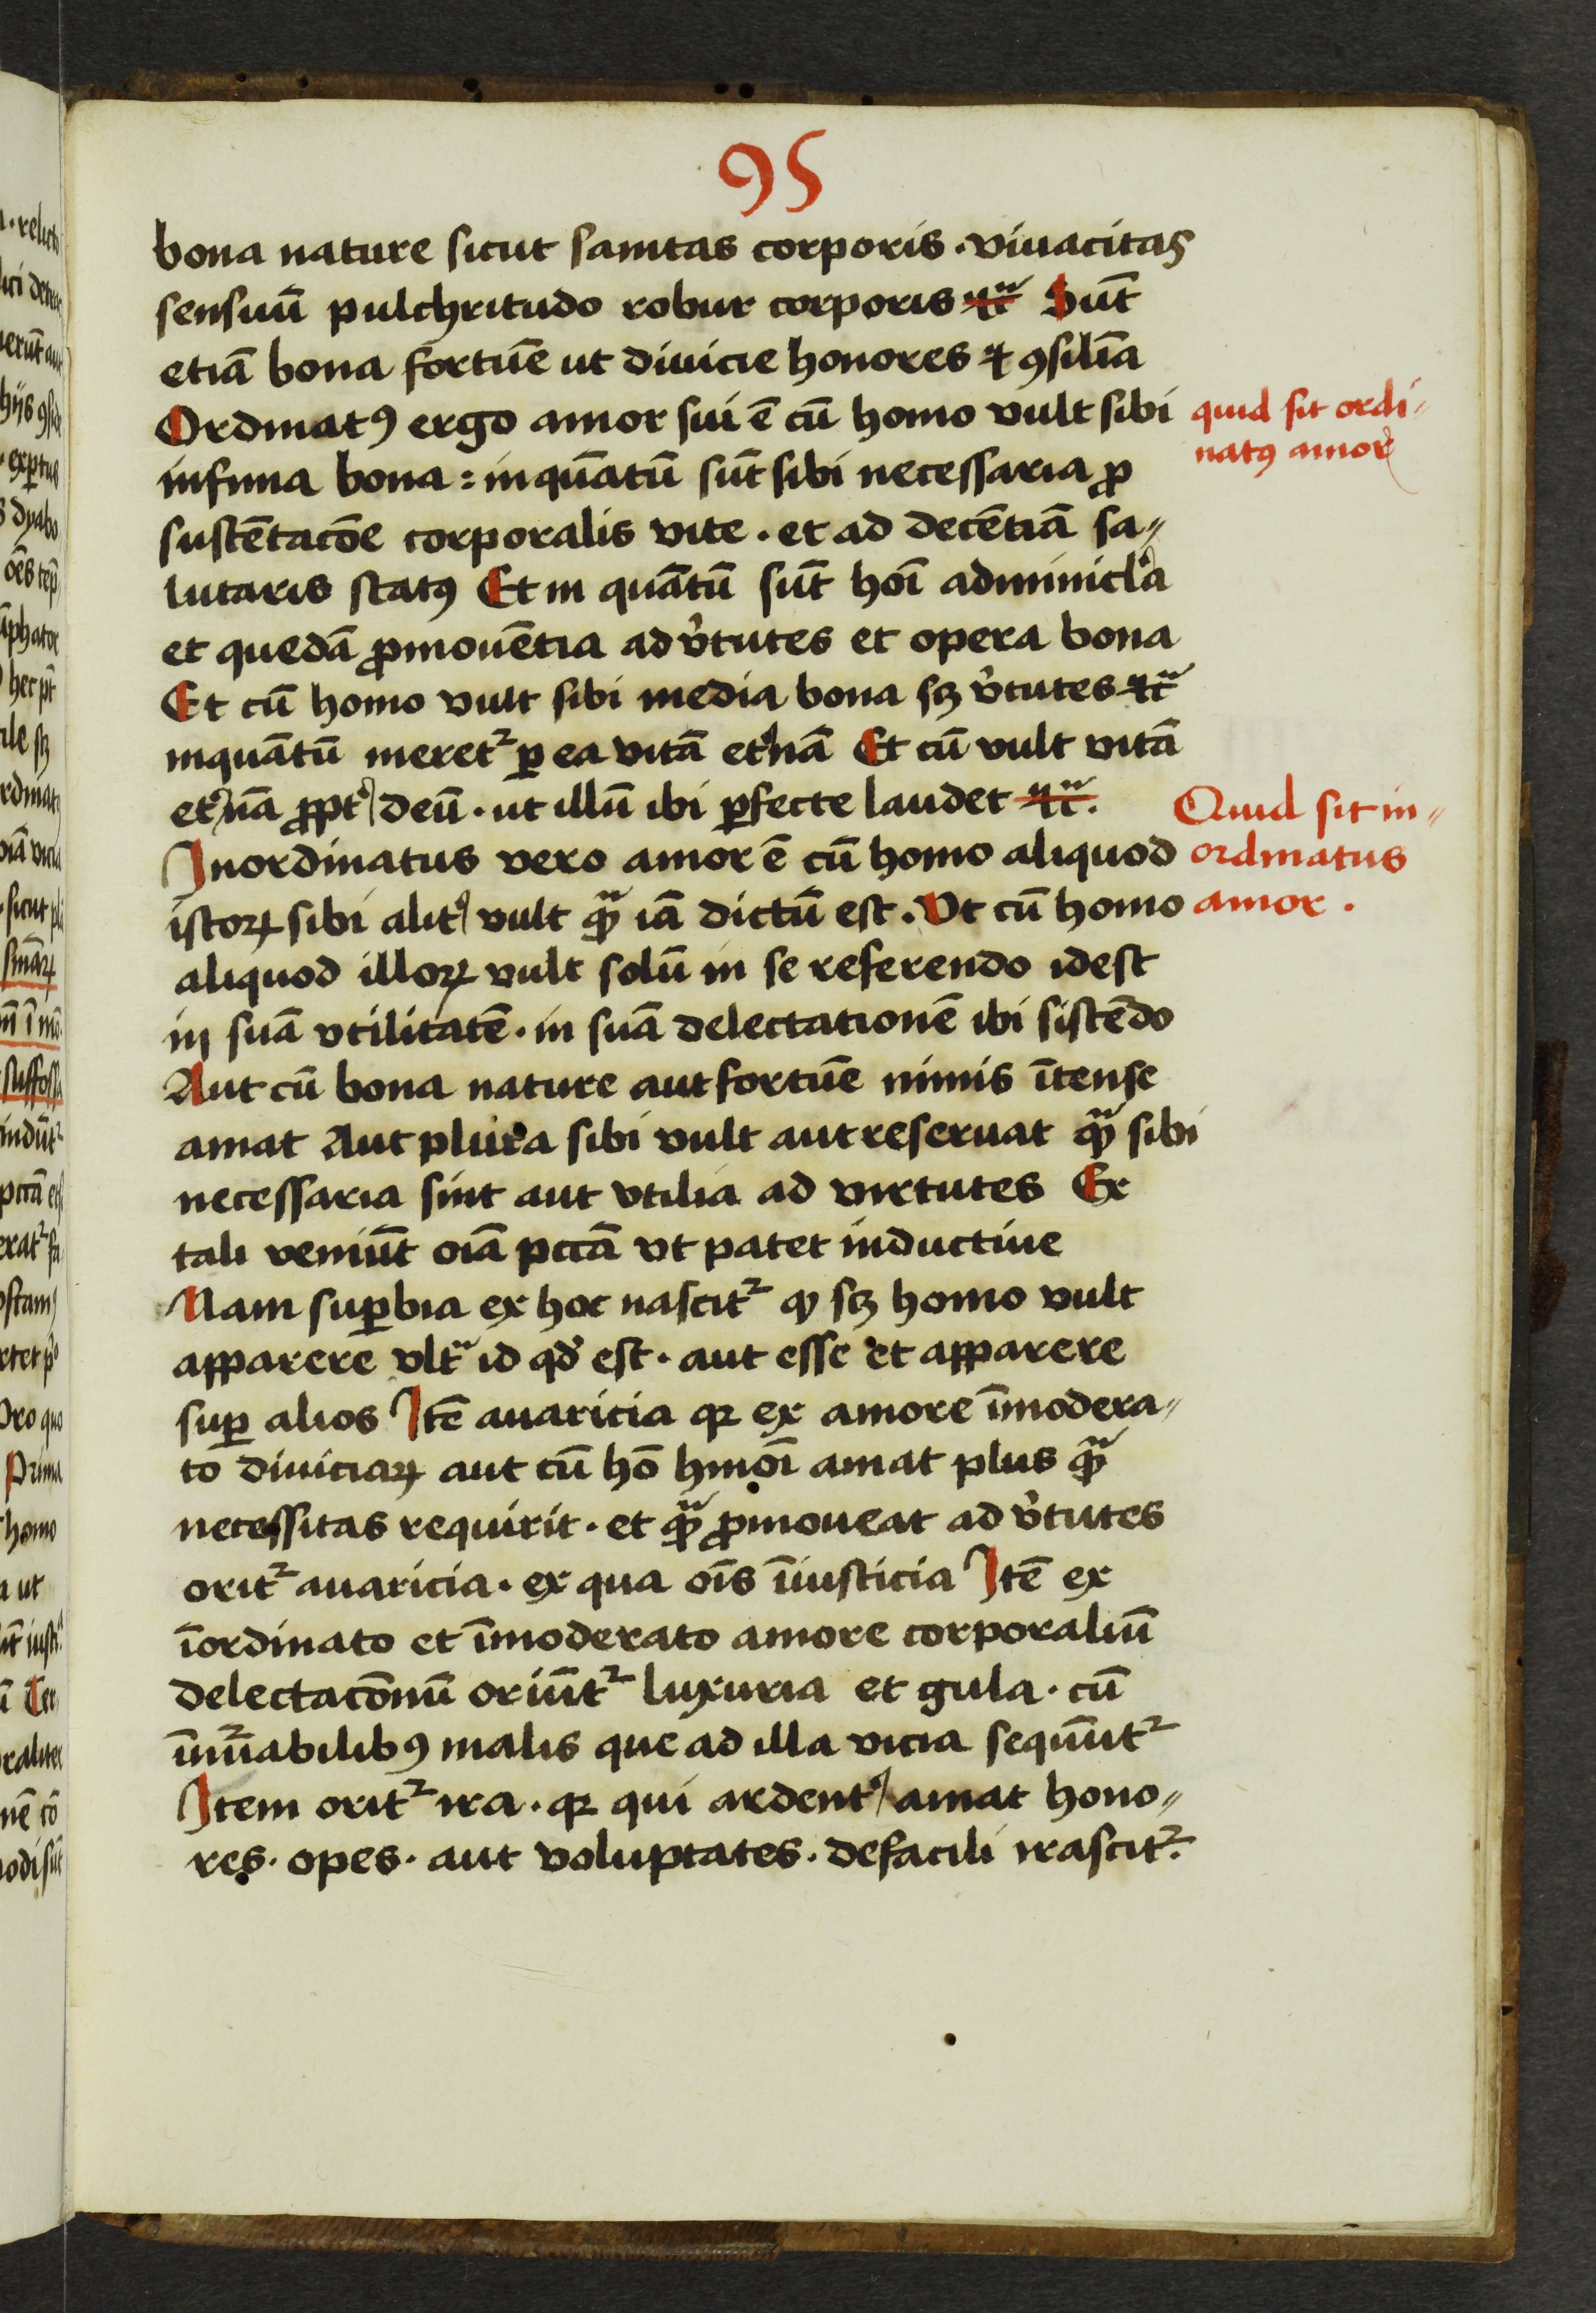 95
bona nature sicut sanitas corporis · viuacitas
sensuū pulchritudo robur corporis ⁊cͣ Sūt
etiā bona fortūe ut diuicie honores ⁊ ꝯsilia
Ordinatꝰ ergo amor sui ē cū homo vult sibi
quid sit ordi-
natꝰ amor
infima bona : inquātū sūt sibi necessaria ꝓ
sustētacōe corporalis vite · et ad decētiā sa-
lutaris statꝰ Et in quātū sūt hoī adminicl'a
et quedā ꝓmouētia ad v̓tutes et opera bona
Et cū homo vult sibi media bona sꝫ v̓tutes ⁊cͣ
inquātū meret᷑ ꝑ ea vitā et̓nā Et cū vult vitā
et̓nā ꝓpt̓ deū · ut illū ibi ꝑfecte laudet ⁊cͣ.
Quid sit in-
ordinatus
amor .
Inordinatus vero amor ē cū homo aliquod
istoꝝ sibi alit̓ vult qͣꝫ iā dictū est . Vt cū homo
aliquod illoꝝ vult solū in se referendo idest
in suā vtilitatē · in suā delectationē ibi sistēdo
Aut cū bona nature aut fortūe nimis ītense
amat Aut plura sibi vult aut reseruat qͣꝫ sibi
necessaria sint aut vtilia ad virtutes Ex
tali veniūt oīa pccā vt patet inductiue
Nam suꝑbia ex hoc nascit᷑ ꝙ sꝫ homo vult
apparere vltͣ id qd̓ est · aut esse et apparere
suꝑ alios Itē auaricia qꝛ ex amore īmodera-
to diuiciaꝝ aut cū hō hmōi amat plus qͣꝫ
necessitas requirit · et qͣꝫ ꝓmoueat ad v̓tutes
orit᷑ auaricia · ex qua oīs īiusticia Itē ex
īordinato et īmoderato amore corporaliū
delectacōnū oriūt᷑ luxuria et gula · cū
īnūabilibꝰ malis que ad illa vicia sequūt᷑
Item orit᷑ ira · qꝛ qui ardent̓ amat hono-
res · opes · aut voluptates · defacili irascit᷑.